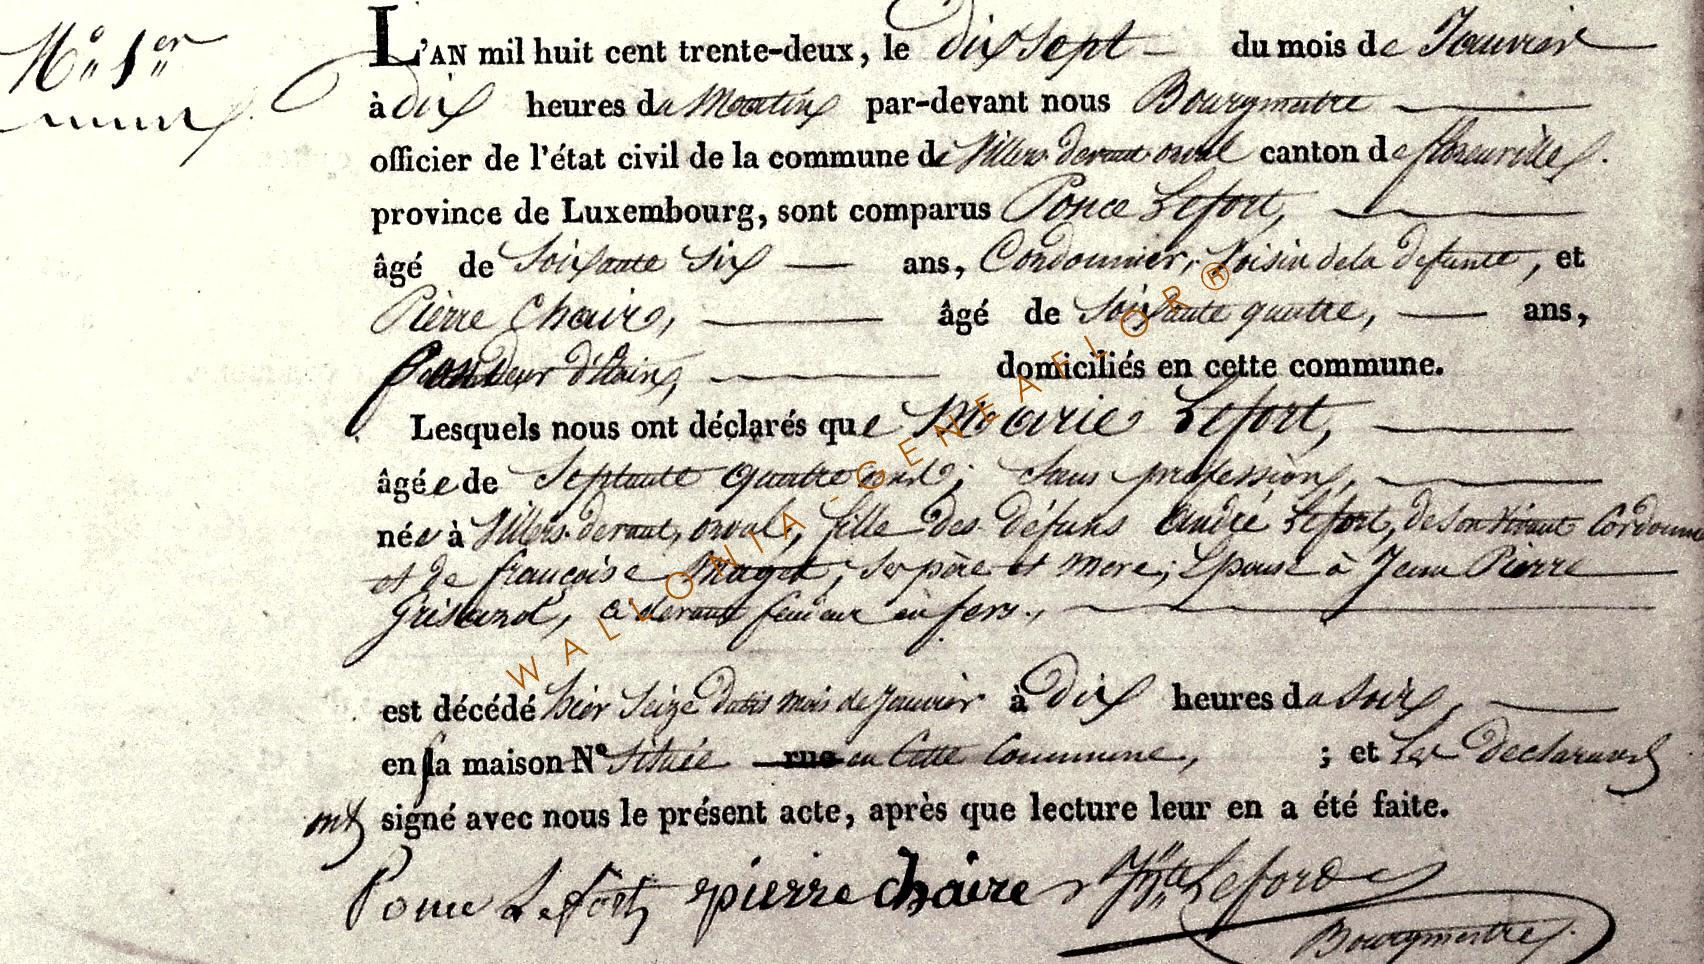 N° 1er
L'AN mil huit cent trente-deux, le dix sept du mois de Janvier
à dix heures du Matin par-devant nous Bourgmestre
officier de l'état civil de la commune de Villers devant orval canton de florenville.
province de Luxembourg, sont comparus Ponce Lefort,
âgé de Soixante Six ans, Cordonnier, Voisin de la defunte, et
Pierre Chaire, âgé de Soixante quatre, ans,
d'Etain, domiciliés en cette commune.
Lesquels nous ont déclarés que Marie Lefort,
âgée de Septante quatre ans; Sans profession,
née à Villers devant orval, fille des défuns André Lefort, de son vivant Cordonn
et de françoise Maget; ses père et mere; Epouse à Jean Pierre
a devant en fers.,
est décédé hier Seize dudit mois de Janvier à dix heures du Soir,
en sa maison N° située rue en Cette Commune, ; et Les declarans
ont signé avec nous le présent acte, après que lecture leur en a été faite.
Ponce Lefort pierre chaire Leford
Bourgmestre.
WALLONIA-GENEAFLOR®